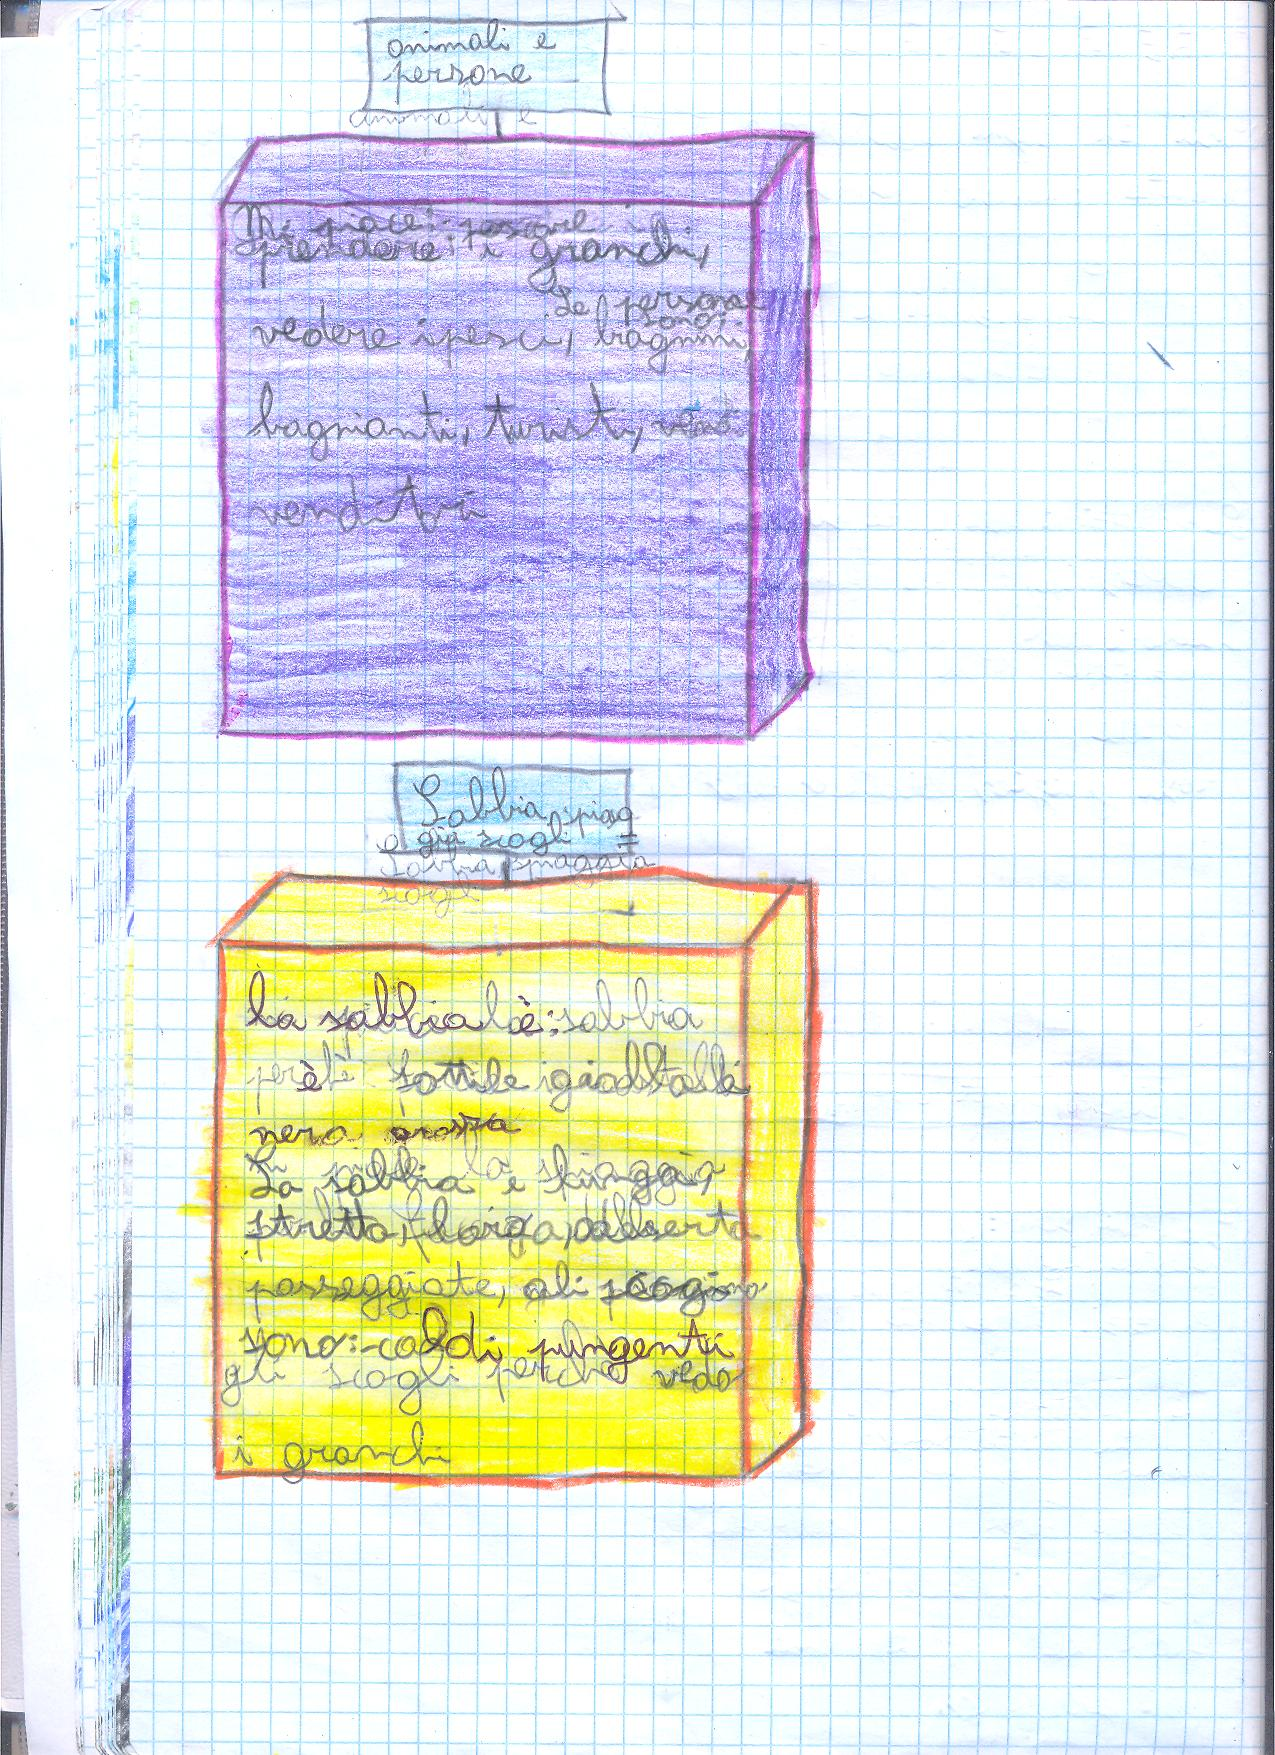 animali e
persone
animali e
Mi piace: pescare
prendere: i granchi,
Le persone
sono:
vedere i pesci, bagnini,
bagnianti, turisti,
venditori
Sabbia spiag
gia scogli =
Sabbia spiaggia
scogli
La sabbia è: sabbia
è sottile gialla
nera
La sabbia e spiaggia,
stretta, larga, deserta
passeggiate,
sono: caldi pungenti
gli scogli perché vedo
i granchi